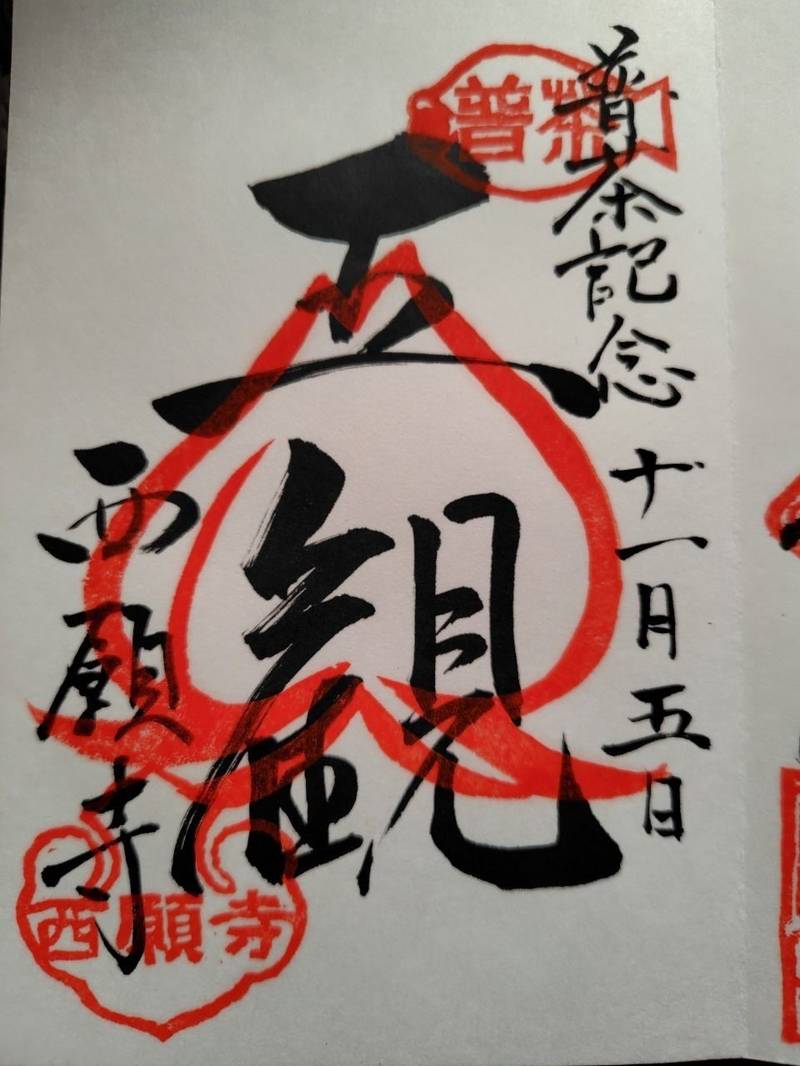 普茶記念 十一月五日
普
五観
西願寺
西願寺